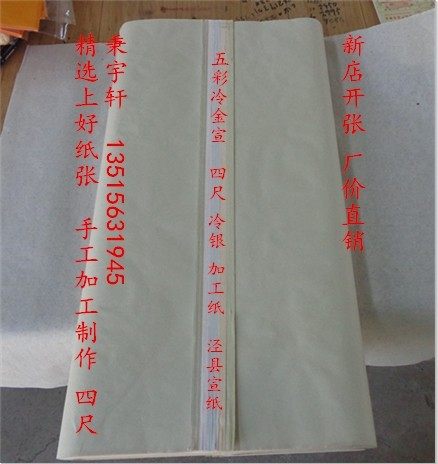 新店开张 厂价直销
五彩冷金宣 四尺 冷银 加工纸 泾县宣纸
秉宇轩 13515631945
精选上好纸张 手工加工制作 四尺